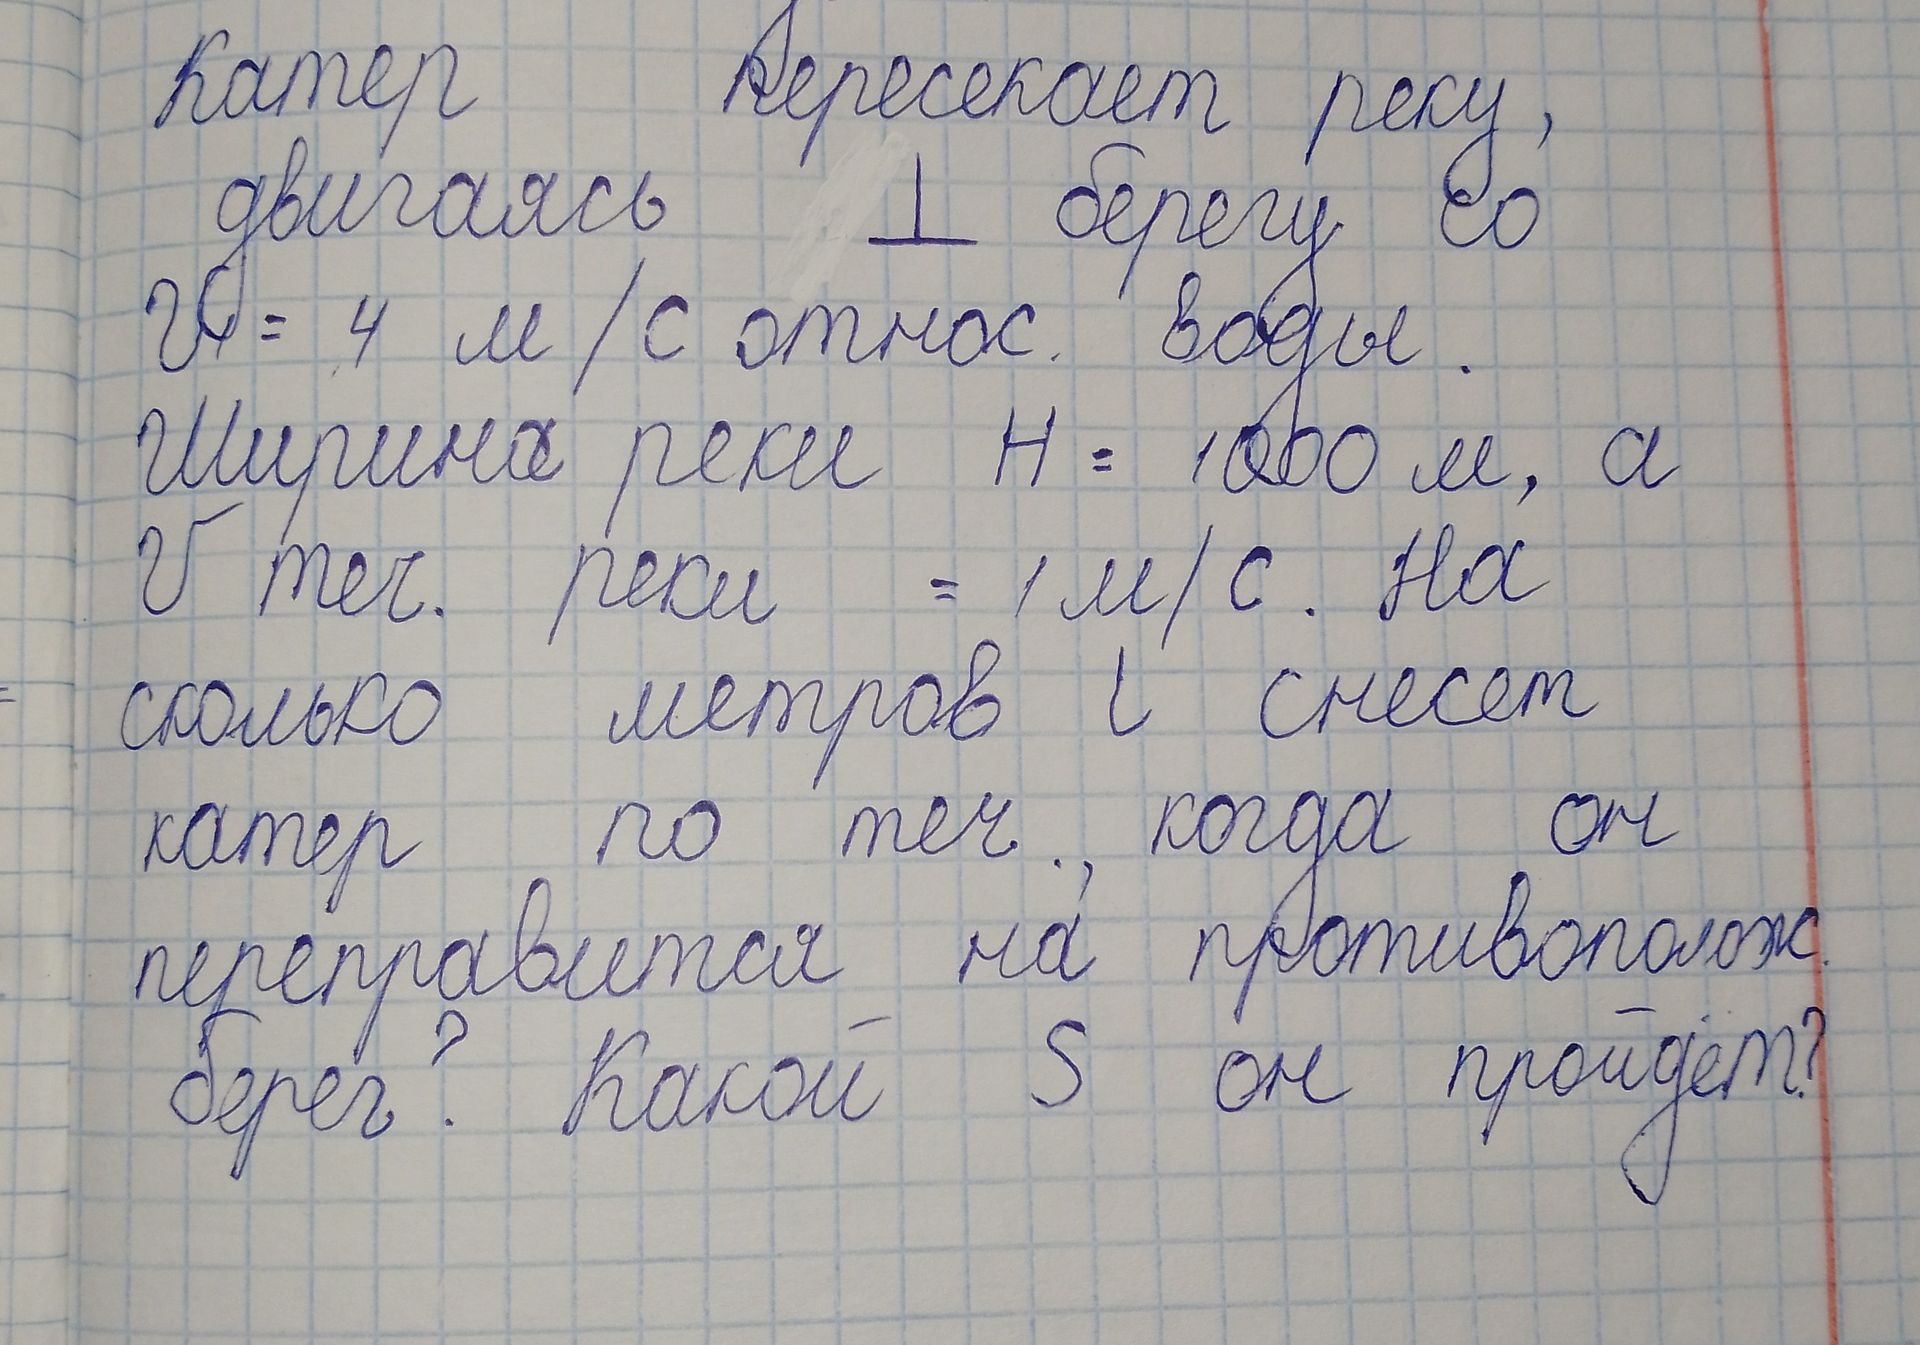 Катер пересекает реку,
двигаясь ⊥ берегу со
V = 4 м/с относ. воды.
Ширина реки H = 1000 м, а
V теч. реки = 1 м/с. На
сколько метров l снесет
катер по теч., когда он
переправится на противополож.
берег? Какой S он пройдёт?